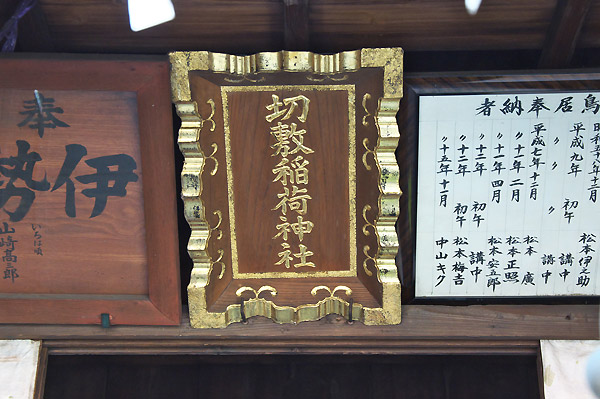 鳥居奉納者
昭和五十八年十二月 松本伊之助
平成九年 初午 講中
〃 〃 講中
平成七年十二月 松本 廣
〃十一年二月 松本正照
〃十一年四月 松本安五郎
〃十二年 初午 講中
〃十二年 初午 松本梅吉
〃十五年十一月 中山キク
切敷稲荷神社
奉
伊勢
山崎高三郎